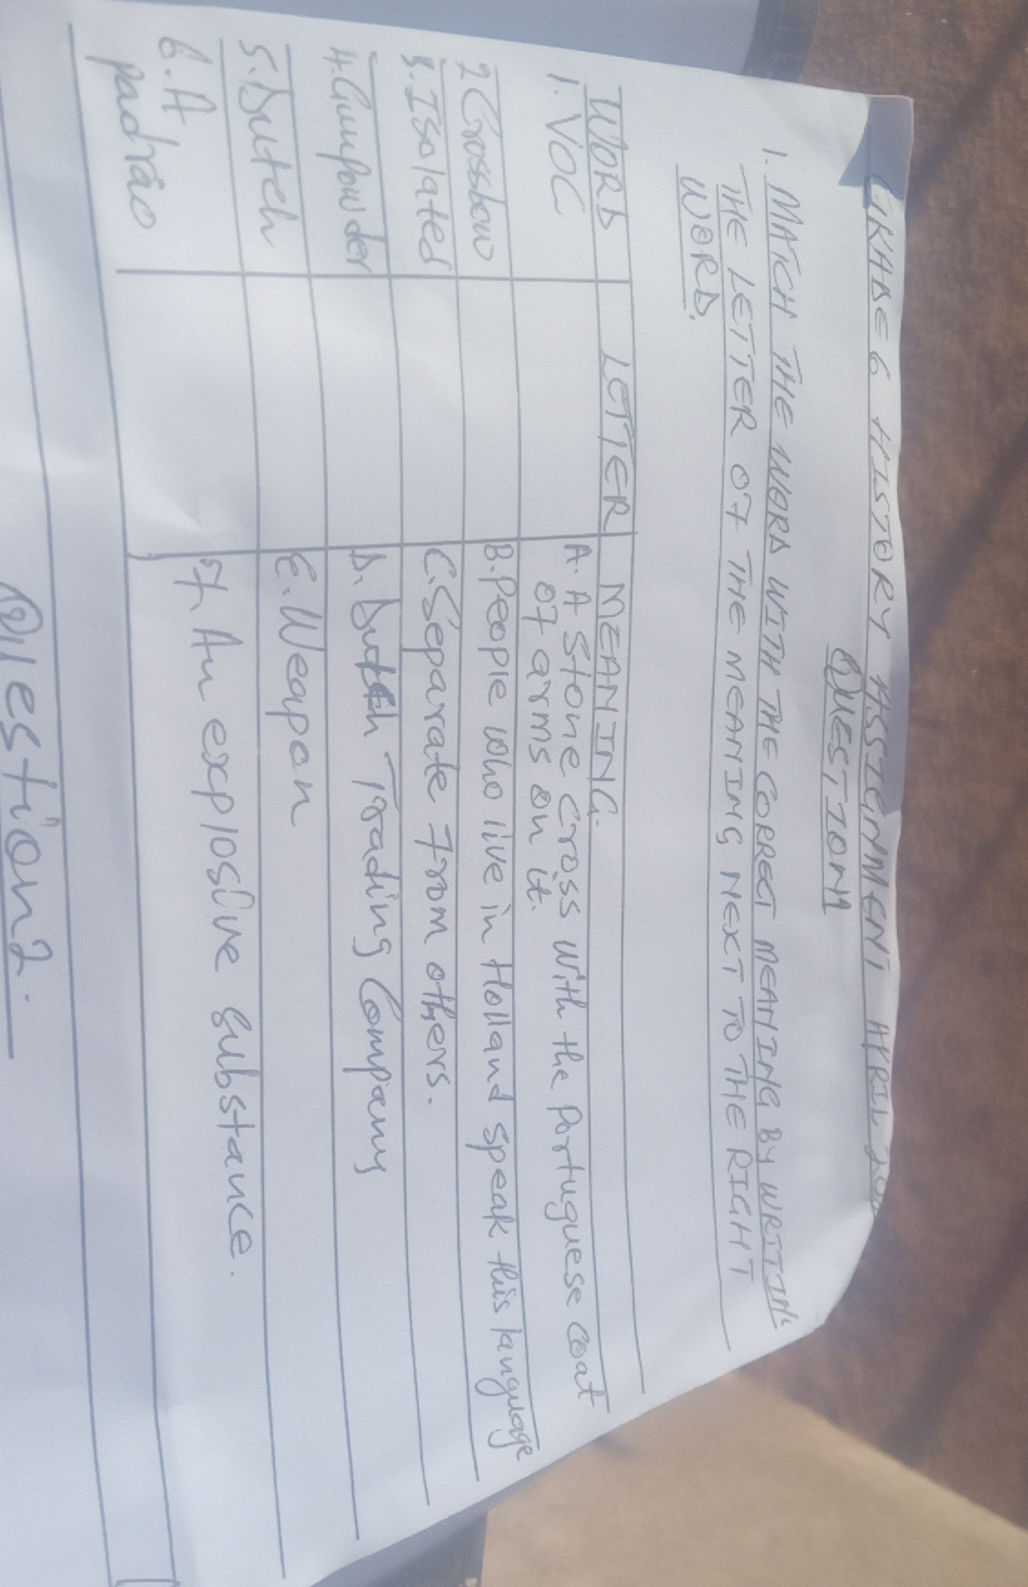 GRADE 6 HISTORY ASSIGNMENT APRIL
QUESTION 1
1. MATCH THE WORD WITH THE CORRECT MEANING BY WRITING
THE LETTER OF THE MEANING NEXT TO THE RIGHT
WORD.
WORD LETTER MEANING.
1. VOC A. A Stone Cross with the Portuguese coat
of arms on it.
2 Crossbow B. People who live in Holland speak this language
3. Isolated C. Separate From others.
4. Gunpowder D. Dutch Trading Company
5. Dutch E. Weapon
6. A F. An explosive substance.
padrão
Question 2.